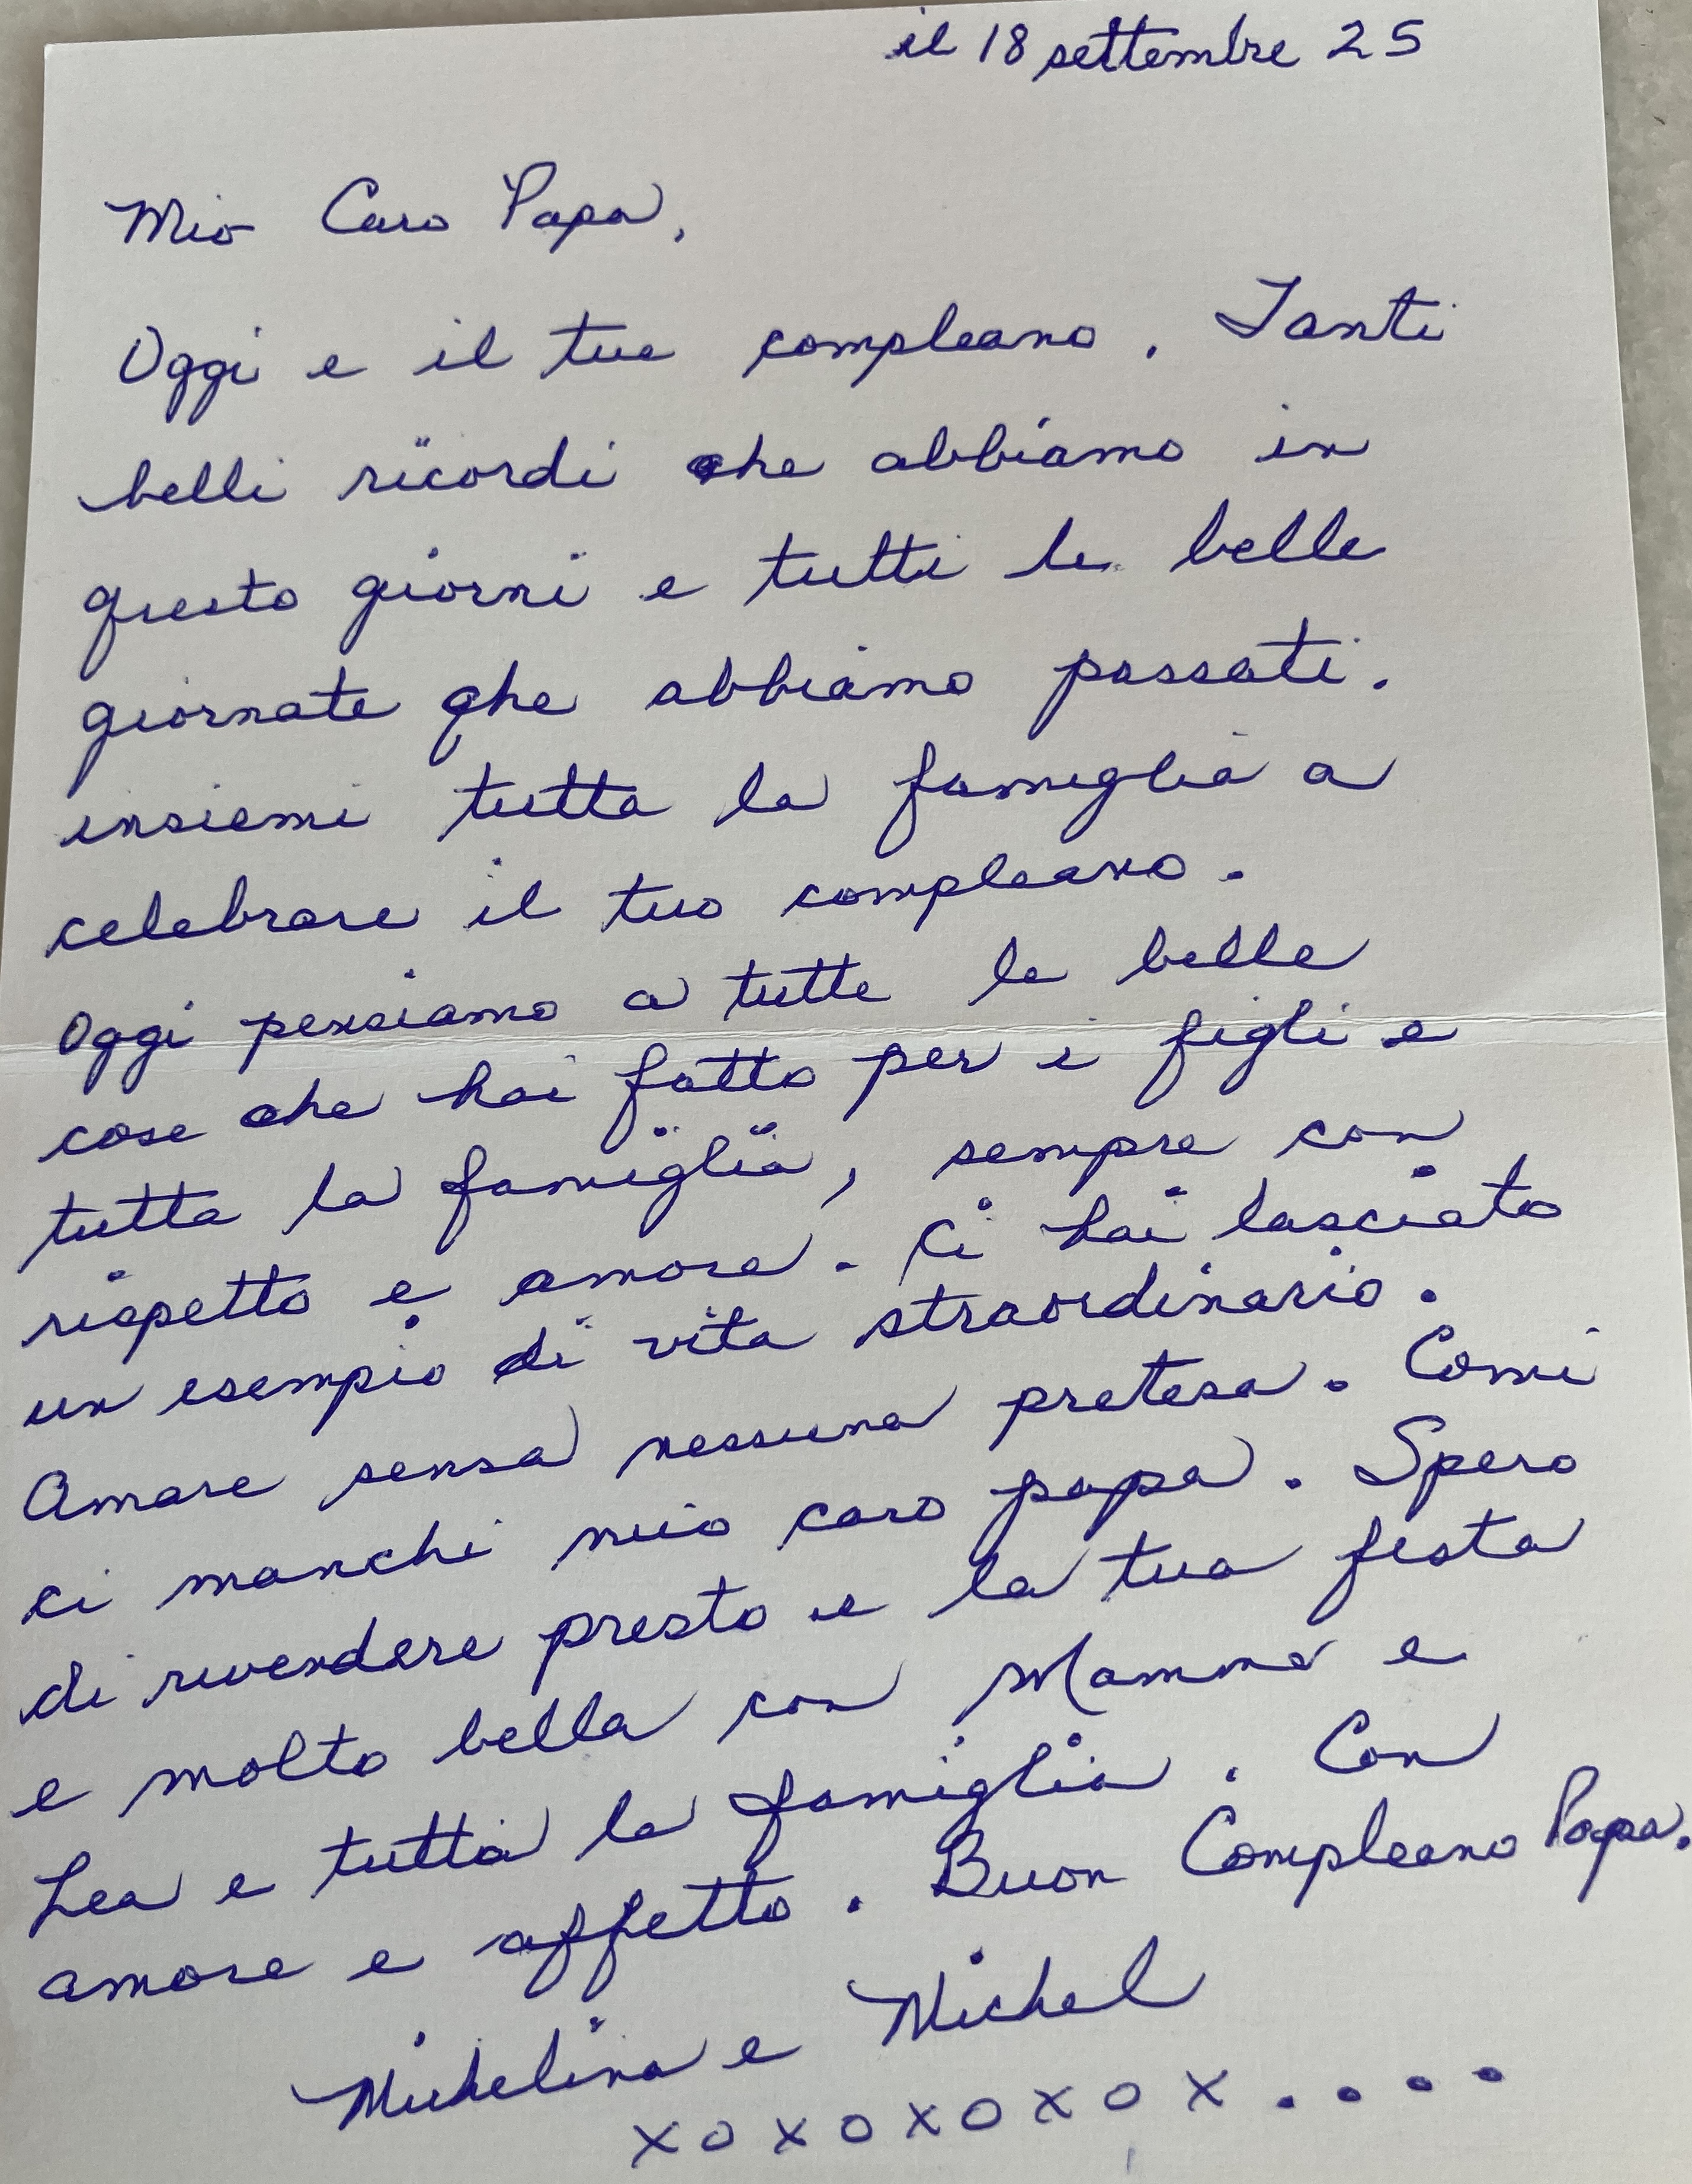 il 18 settembre 25
Mio Caro Papa,
Oggi e il tuo compleano. Tanti
belli ricordi che abbiamo in
questo giorni e tutti le belle
giornate che abbiamo passati.
insiemi tutta la famiglia a
celebrare il tuo compleano.
Oggi pensiamo a tutte le belle
cose che hai fatto per i figli e
tutta la famiglia, sempre con
rispetto e amore. Ci hai lasciato
un esempio di vita straordinario.
Amare sensa nessuna pretesa. Comi
ci manchi mio caro papa. Spero
di rivendere presto e la tua festa
e molto bella con Mamma e
Lea e tutta la famiglia. Con
amore e affetto. Buon Compleano Papa.
Michelina e Michel
xoxoxoxox....